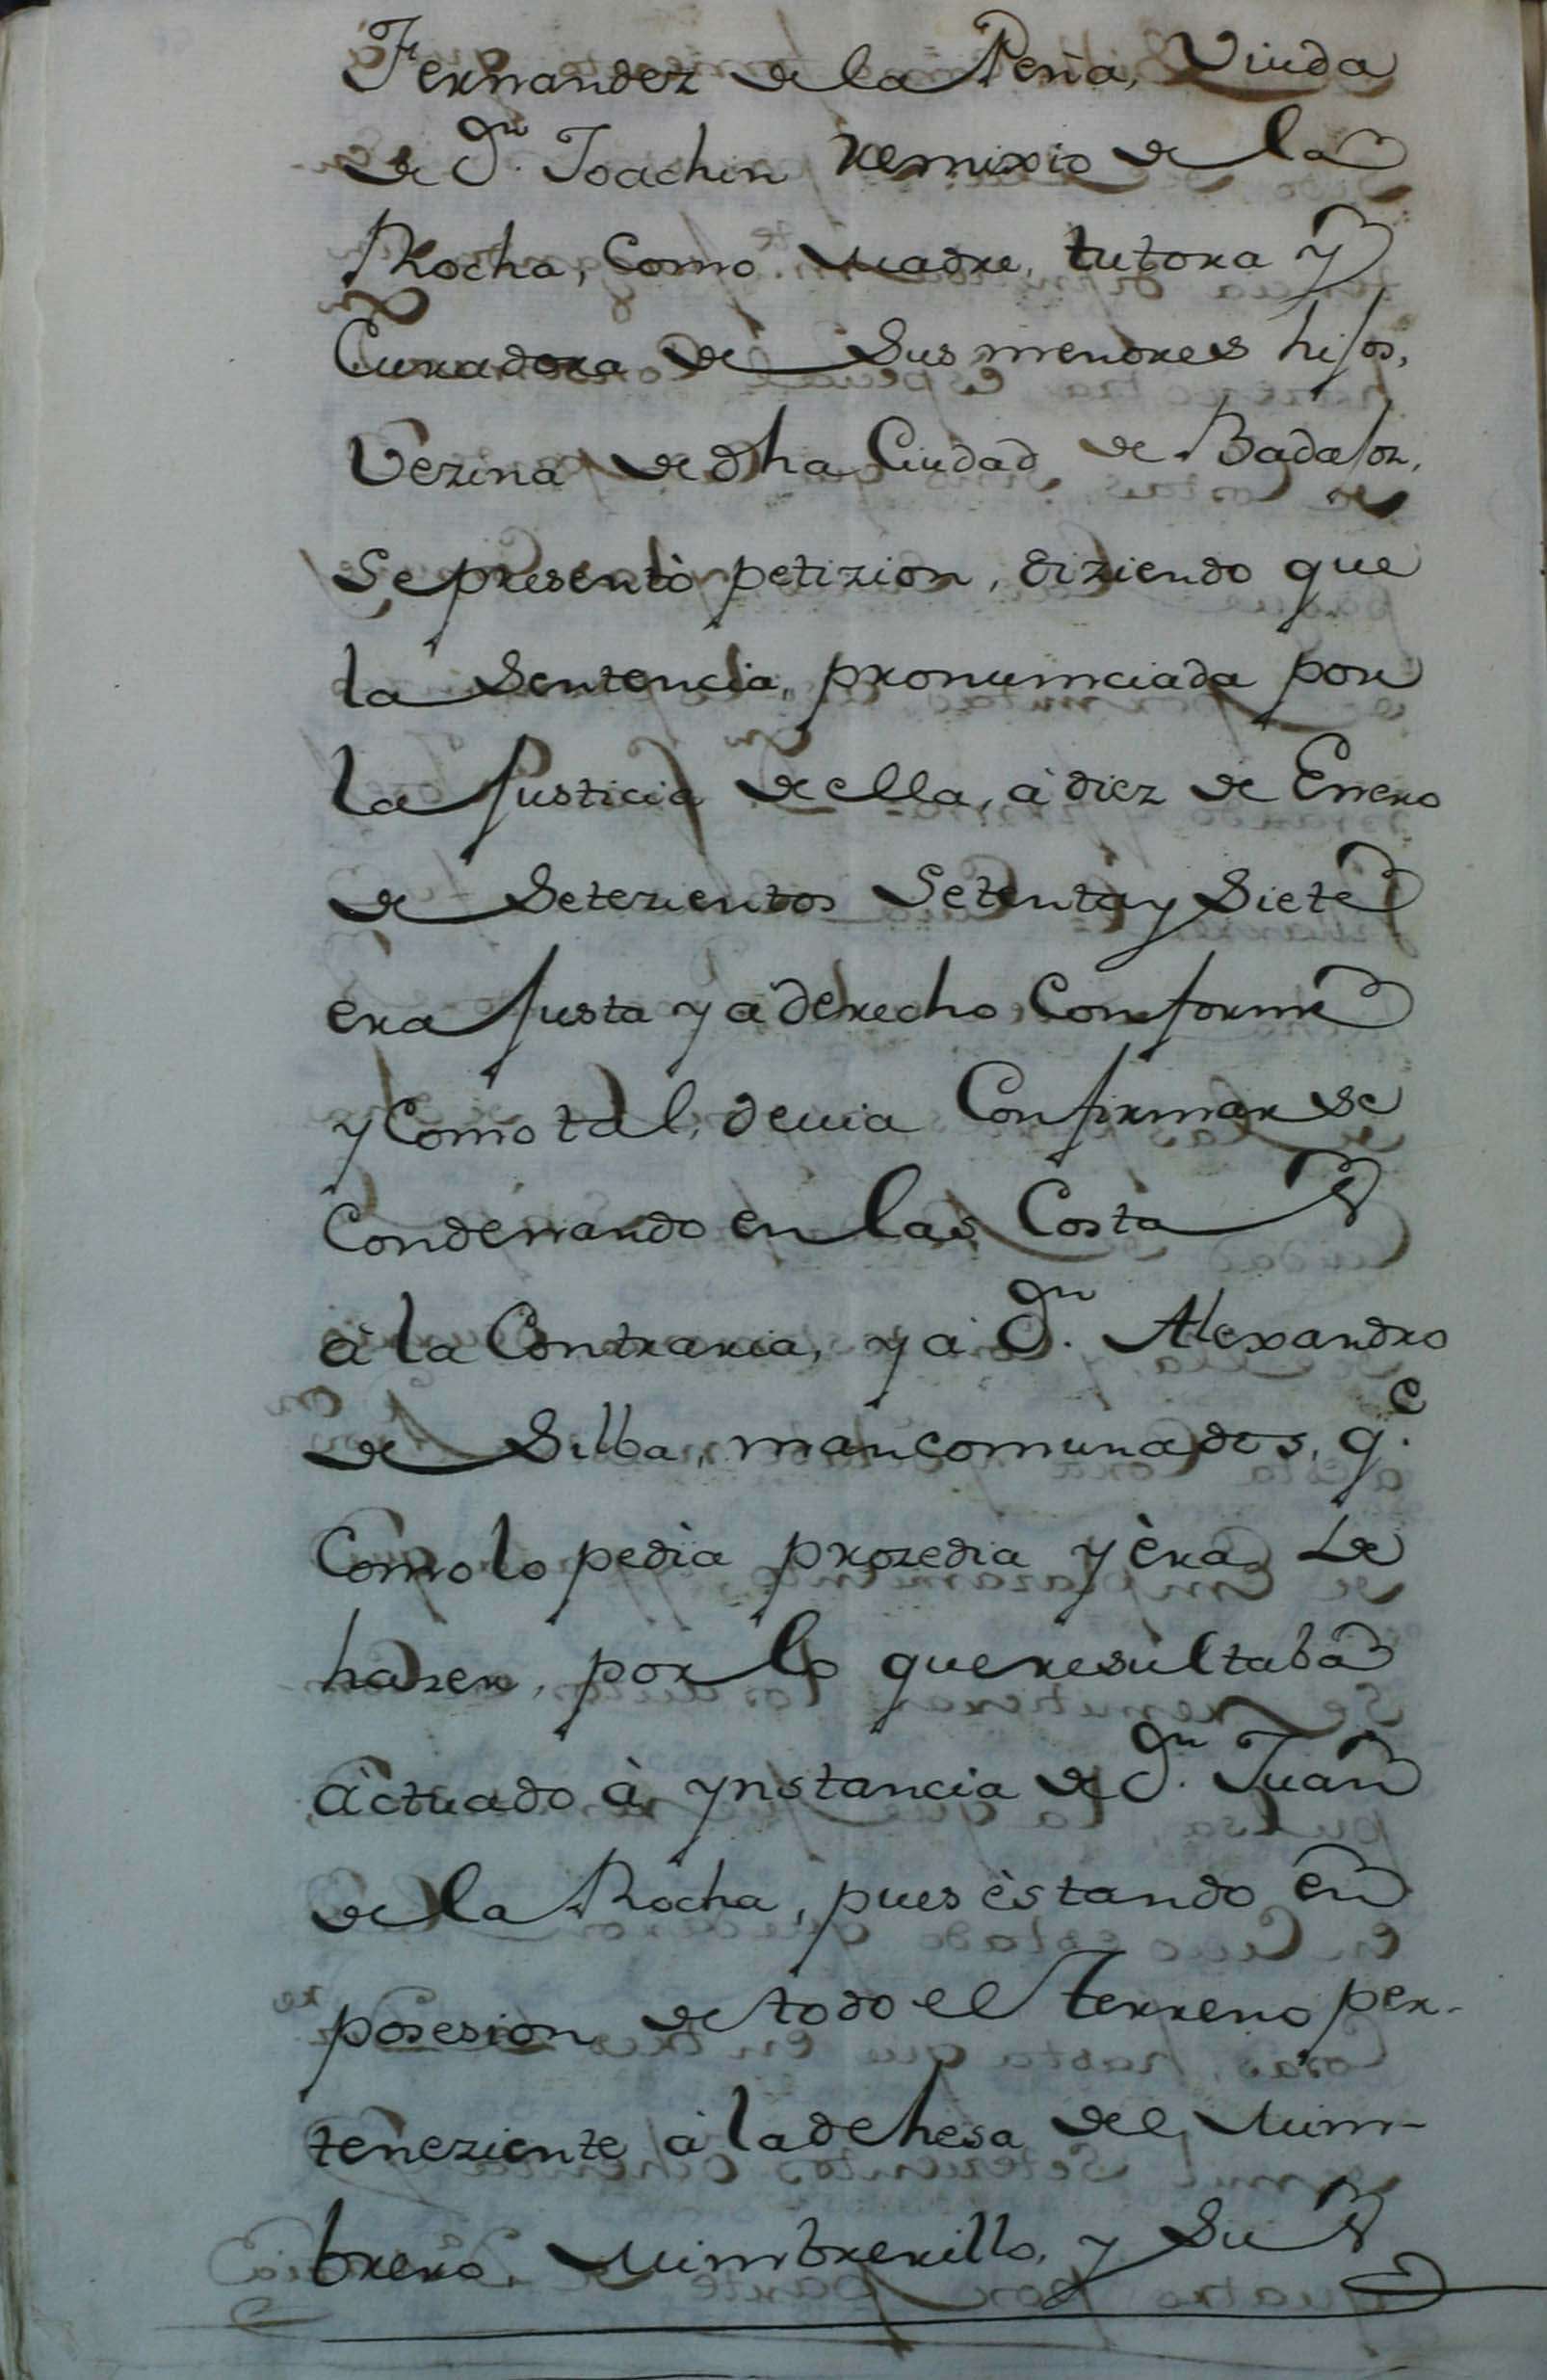 Fernandez de la Peña, Viuda
de Dn. Joachin Remixio de la
Rocha, Como Madre, tutora y
Curadora de Sus menores hijos,
Vezina de dha Ciudad de Badajoz,
Se presentò petizion, diziendo que
la Sentencia, pronunciada por
la Justicia de ella, à diez de Enero
de Setezientos Setenta y Siete
era Justa y à derecho Conforme
y Como tal, devia Confirmarse
Condenando en las Costas
à la Contraria, y à Dn. Alexandro
de Silba, mancomunados, qe.
Como lo pedìa prozedia y èra de
hazer, por lo que resultaba
àctuado à ynstancia de Dn. Juan
de la Rocha, pues èstando en
posesion de todo el terreno per-
teneziente à la dehesa del Mim-
brero, Mimbrerillo, y Sus